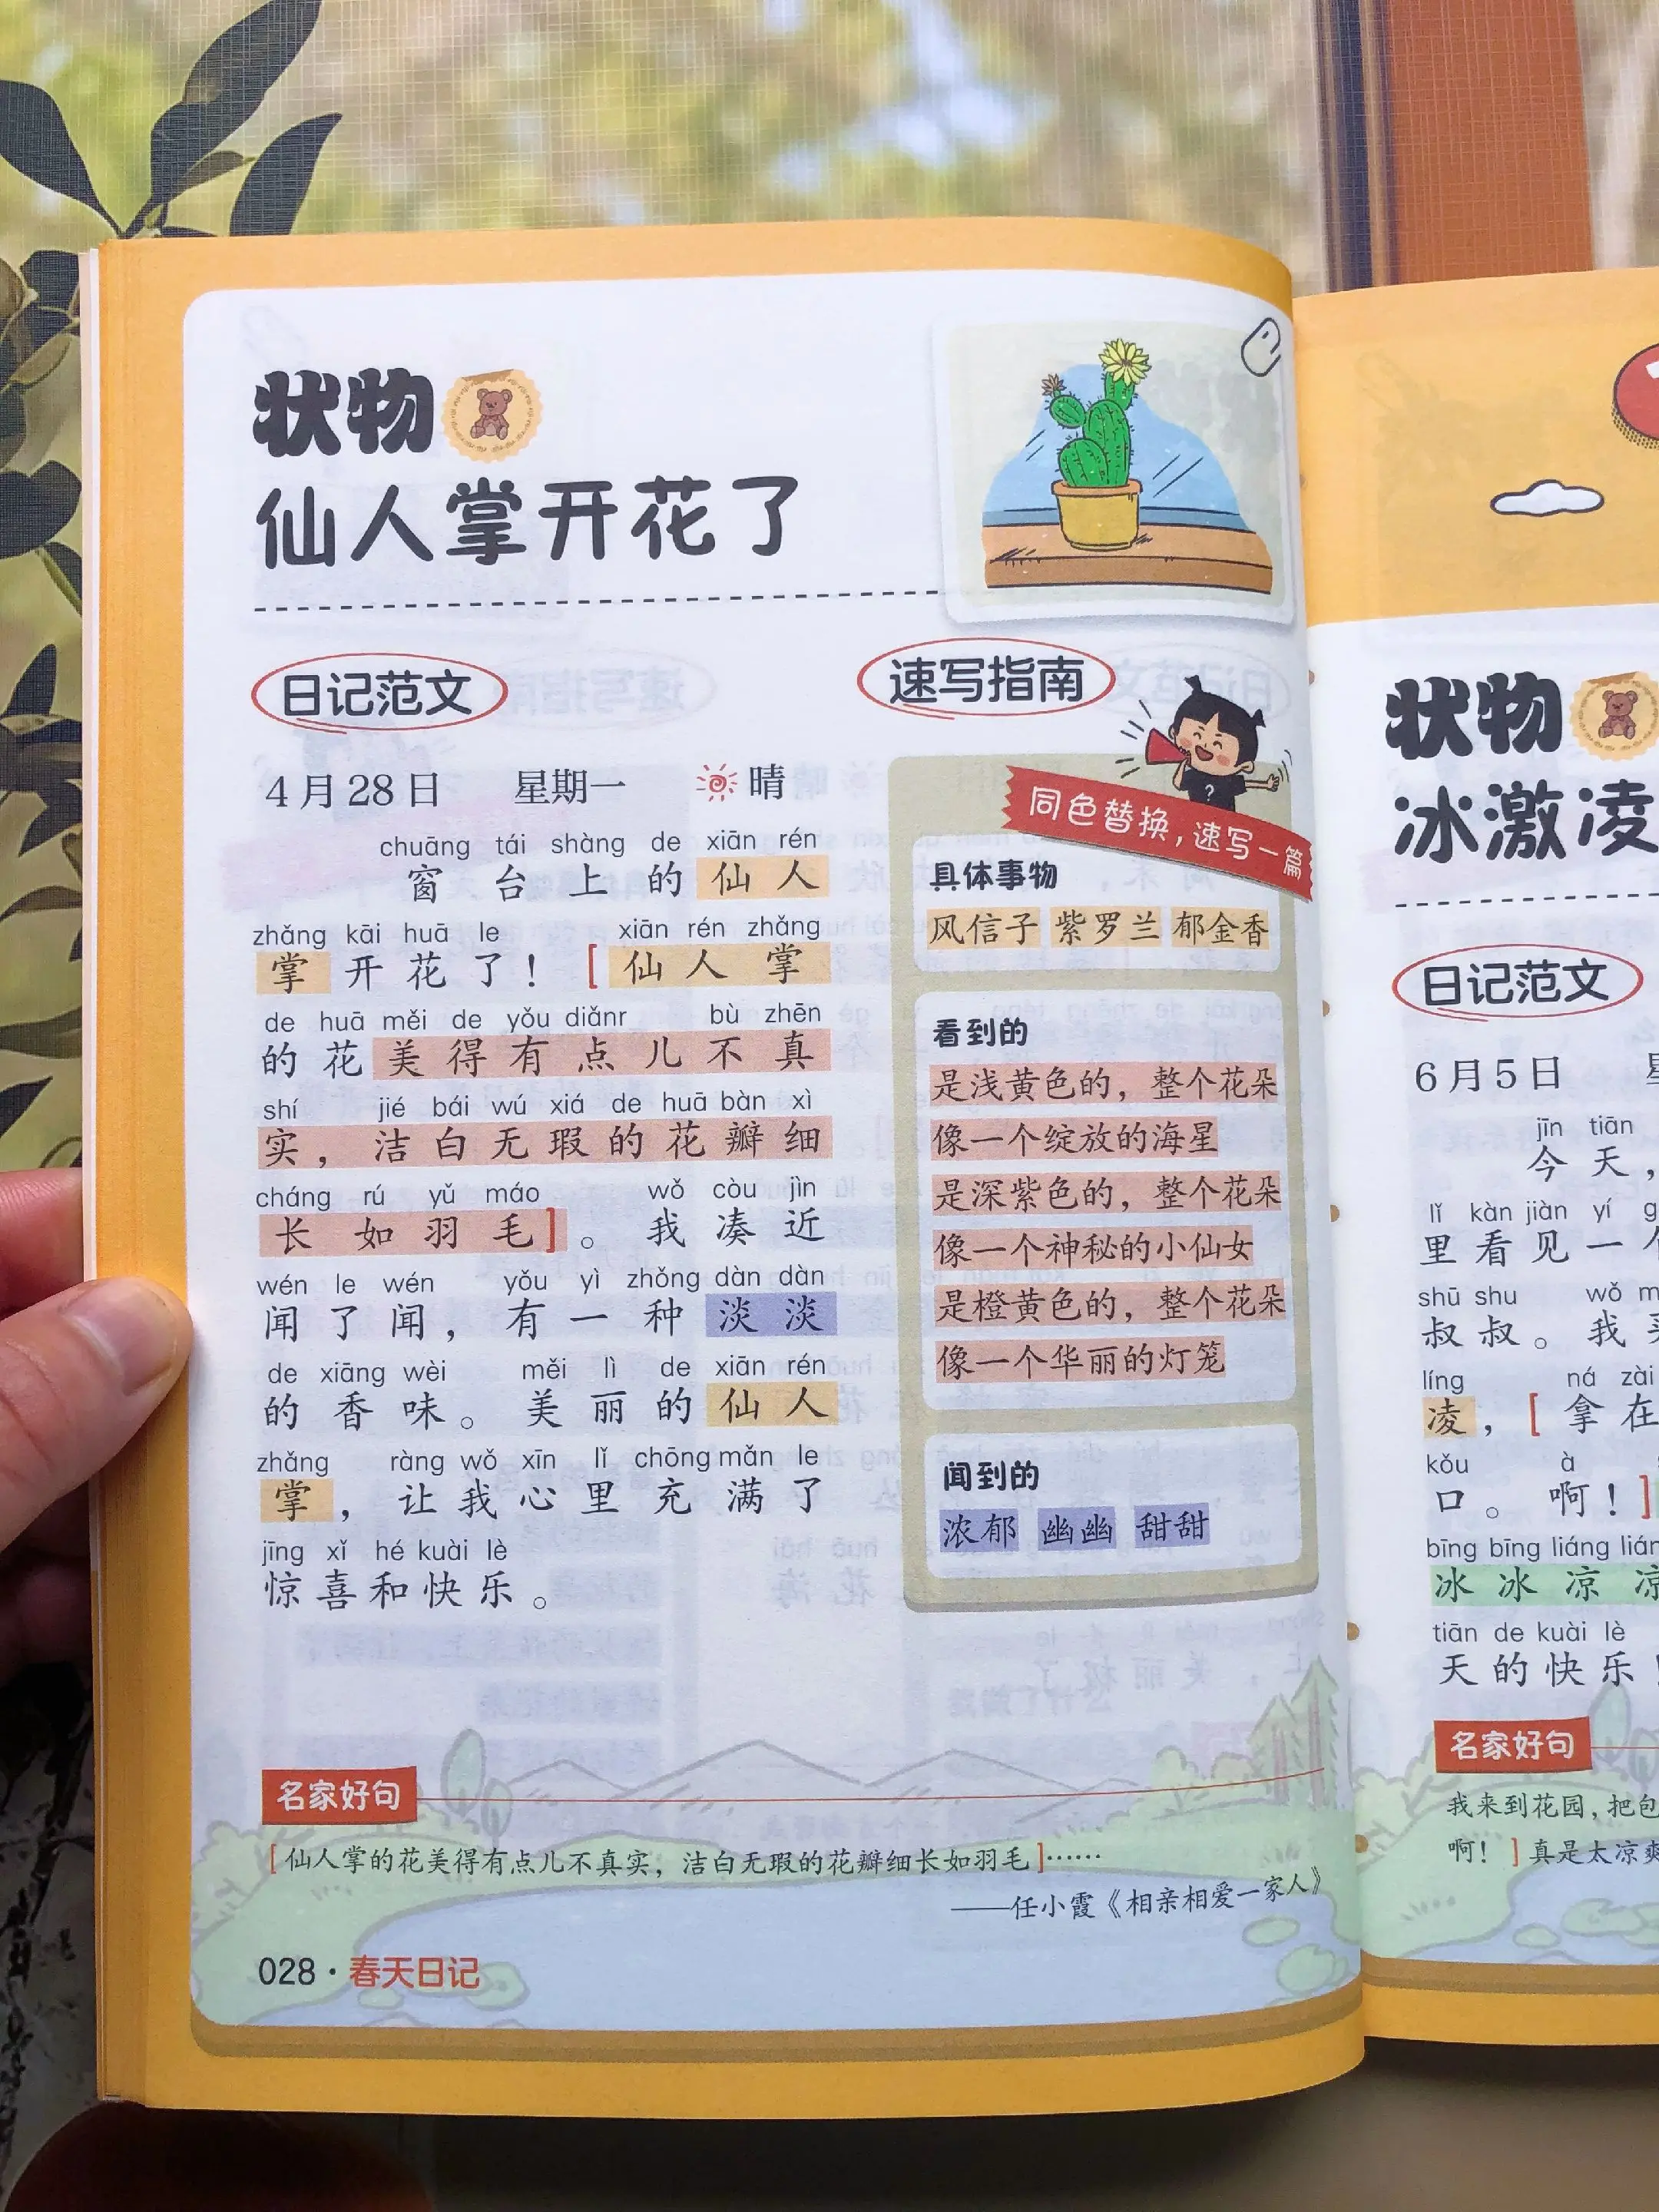 状物
仙人掌开花了
日记范文
4月28日 星期一 晴
chuāng tái shàng de xiān rén
窗台上的仙人
zhǎng kāi huā le xiān rén zhǎng
掌开花了！[仙人掌
de huā měi de yǒu diǎnr bù zhēn
的花美得有点儿不真
shí jié bái wú xiá de huā bàn xì
实，洁白无瑕的花瓣细
cháng rú yǔ máo wǒ còu jìn
长如羽毛]。我凑近
wén le wén yǒu yì zhǒng dàn dàn
闻了闻，有一种淡淡
de xiāng wèi měi lì de xiān rén
的香味。美丽的仙人
zhǎng ràng wǒ xīn lǐ chōng mǎn le
掌，让我心里充满了
jīng xǐ hé kuài lè
惊喜和快乐。
速写指南
同色替换，速写一篇
具体事物
风信子 紫罗兰 郁金香
看到的
是浅黄色的，整个花朵
像一个绽放的海星
是深紫色的，整个花朵
像一个神秘的小仙女
是橙黄色的，整个花朵
像一个华丽的灯笼
闻到的
浓郁 幽幽 甜甜
名家好句
[仙人掌的花美得有点儿不真实，洁白无瑕的花瓣细长如羽毛]……
——任小霞《相亲相爱一家人》
028·春天日记
状物
冰激凌
日记范文
6月5日
jīn tiān
今天，
lǐ kàn jiàn yí
里看见一
shū shu wǒ
叔叔。我
líng ná zài
凌，[拿在
kǒu à
口。啊！]
bīng bīng liáng liáng
冰冰凉凉
tiān de kuài lè
天的快乐！
名家好句
我来到花园，把包
啊！]真是太凉爽